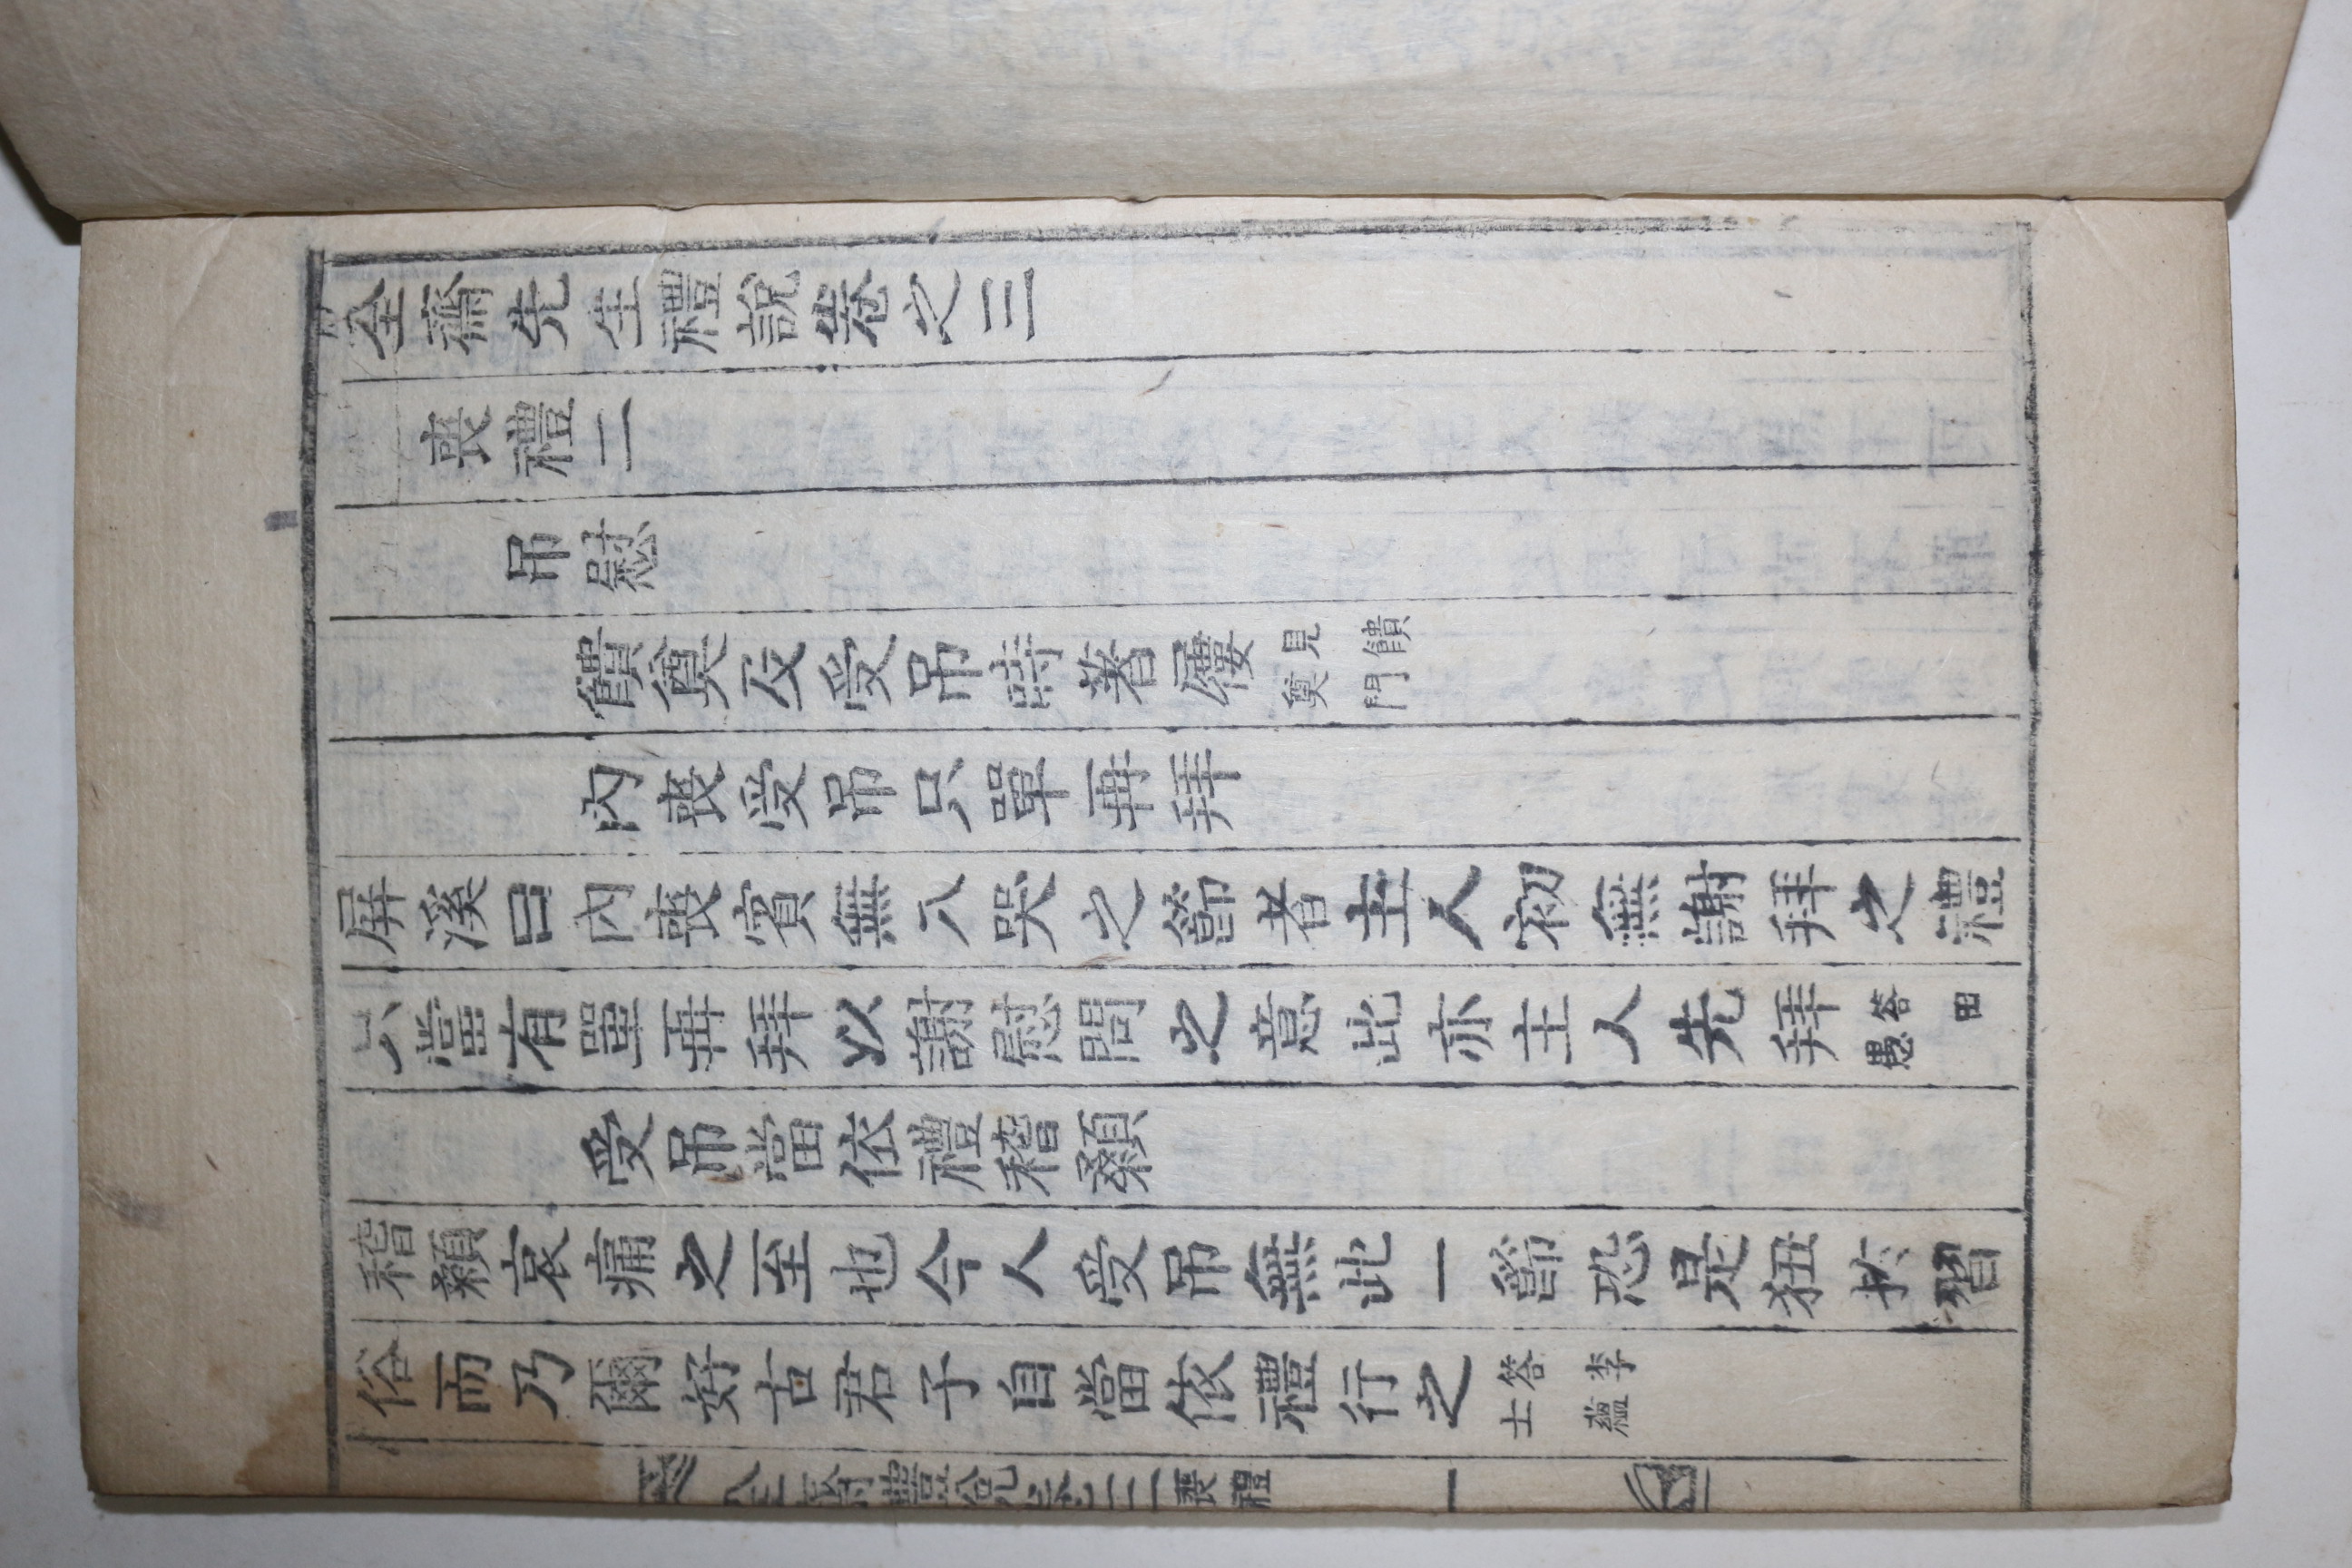 全齋先生禮說卷之三
喪禮二
吊慰
饋奠及受吊時著屨 見饋奠門
內喪受吊只單再拜
屛溪曰內喪賓無入哭之節者主人初無謝拜之禮
只當有單再拜以謝慰問之意此亦主人先拜 答田愚
受吊當依禮稽顙
稽顙哀痛之至也今人受吊無此一節恐是狃於習
俗而乃爾好古君子自當依禮行之 答李士蘊
全齋禮說卷之三 喪禮 一